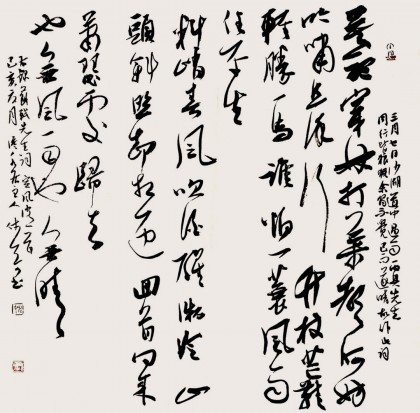 三月七日沙湖道中遇雨雨具先去
同行皆狼狽余獨不覺已而遂晴故作此詞
莫聽穿林打葉聲何妨
吟嘯且徐行竹杖芒鞋
輕勝馬誰怕一蓑雨
任平生
料峭春風吹酒醒微冷山
頭斜照却相迎回首向來
蕭瑟處歸去
也無風雨也無晴
右錄蘇軾先生詞定風波一首
己亥夏月